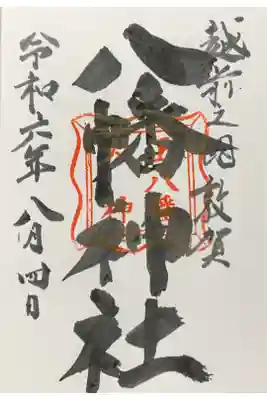 越前之国敦賀
八幡神社
令和六年八月四日